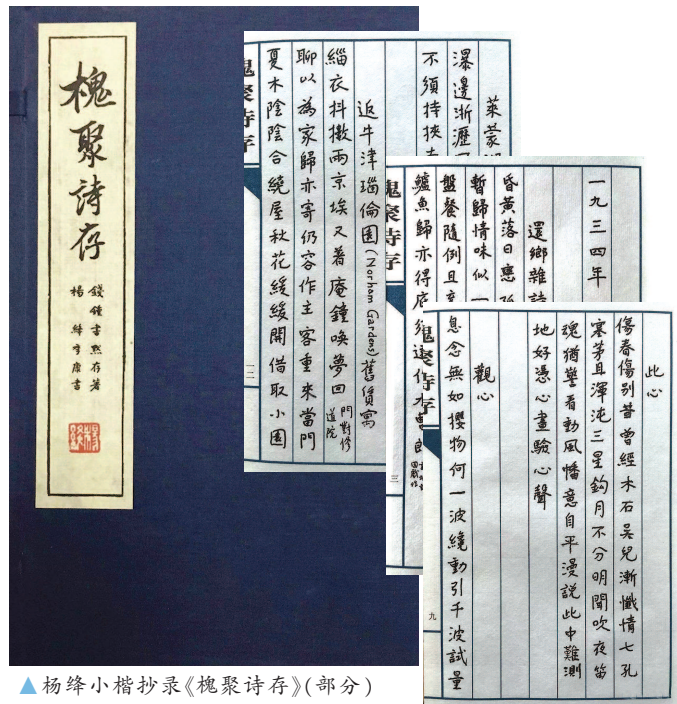 槐聚詩存
錢鍾書默存著
楊絳季康書
萊蒙
瀑邊淅瀝
不須持挾
返牛津瑙倫園(Norham Gardens)舊賃寓
緇衣抖擻兩京埃又著庵鐘喚夢回門對修道院
聊以為家歸亦寄仍容作主客重來當門
夏木陰陰合繞屋秋花緩緩開借取小園
槐聚詩存
一九三四年
還鄉雜詩
昏黃落日戀
暫歸情味似一
盤餐隨例且
鱸魚歸亦得底須
槐聚詩存
三
此心
傷春傷別昔曾經木石吳兒漸懺情七孔
塞茅且渾沌三星鈎月不分明聞吹夜笛
魂猶警看動風幡意自平漫說此中難測
地好憑心畫驗心聲
觀心
息念無如攖物何一波纔動引千波試量
槐聚詩存
九
▲杨绛小楷抄录《槐聚诗存》(部分)